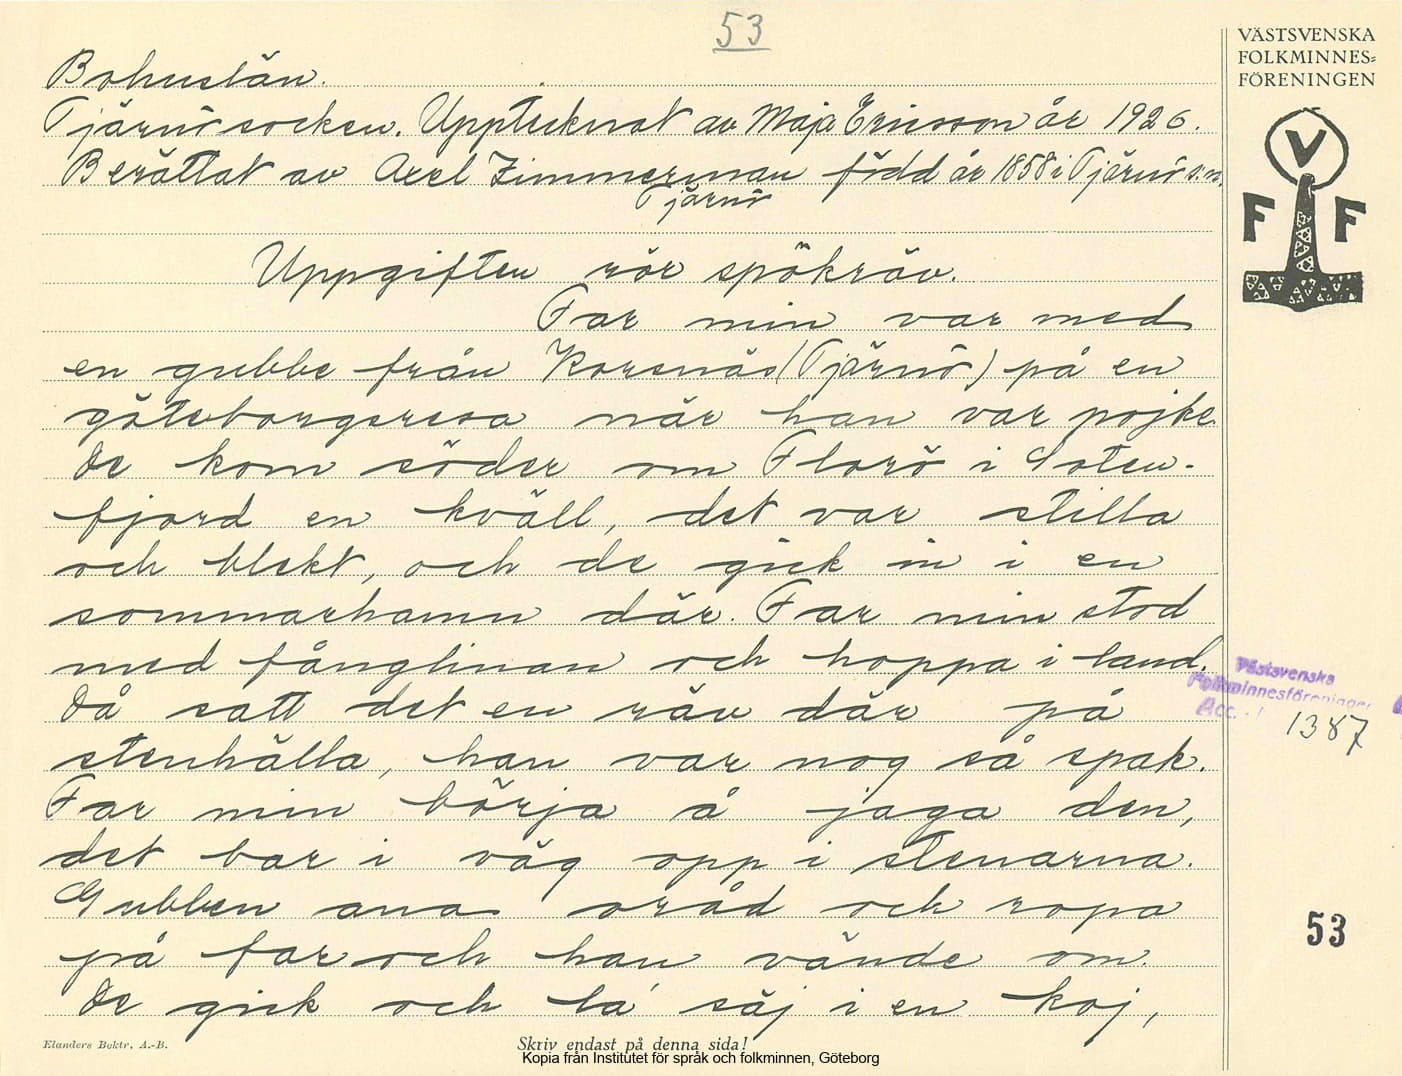 53
VÄSTSVENSKA
FOLKMINNES-
FÖRENINGEN
V
F F
Bohuslän.
Tjärnö socken. Upptecknat av Maja Ericsson år 1926.
Berättat av Axel Zimmerman född år 1858 i Tjärnö s:n.
Tjärnö
Uppgiften rör spökräv.
Far min var med
en gubbe från Korsnäs (Tjärnö) på en
göteborgsresa när han var pojke.
De kom söder om Florö i Soten-
fjord en kväll, det var stilla
och blekt, och de gick in i en
sommarhamn där. Far min stod
med fånglinan och hoppa i land.
Då satt det en räv där på
stenhälla, han var nog så spak.
Far min börja å jaga den,
det bar i väg opp i stenarna.
Gubben ana oråd och ropa
på far och han vände om.
De gick och la' säj i en koj,
Västsvenska
Folkminnesföreningen
Acc.
1387
53
Elanders Boktr. A.-B.
Skriv endast på denna sida!
Kopia från Institutet för språk och folkminnen, Göteborg